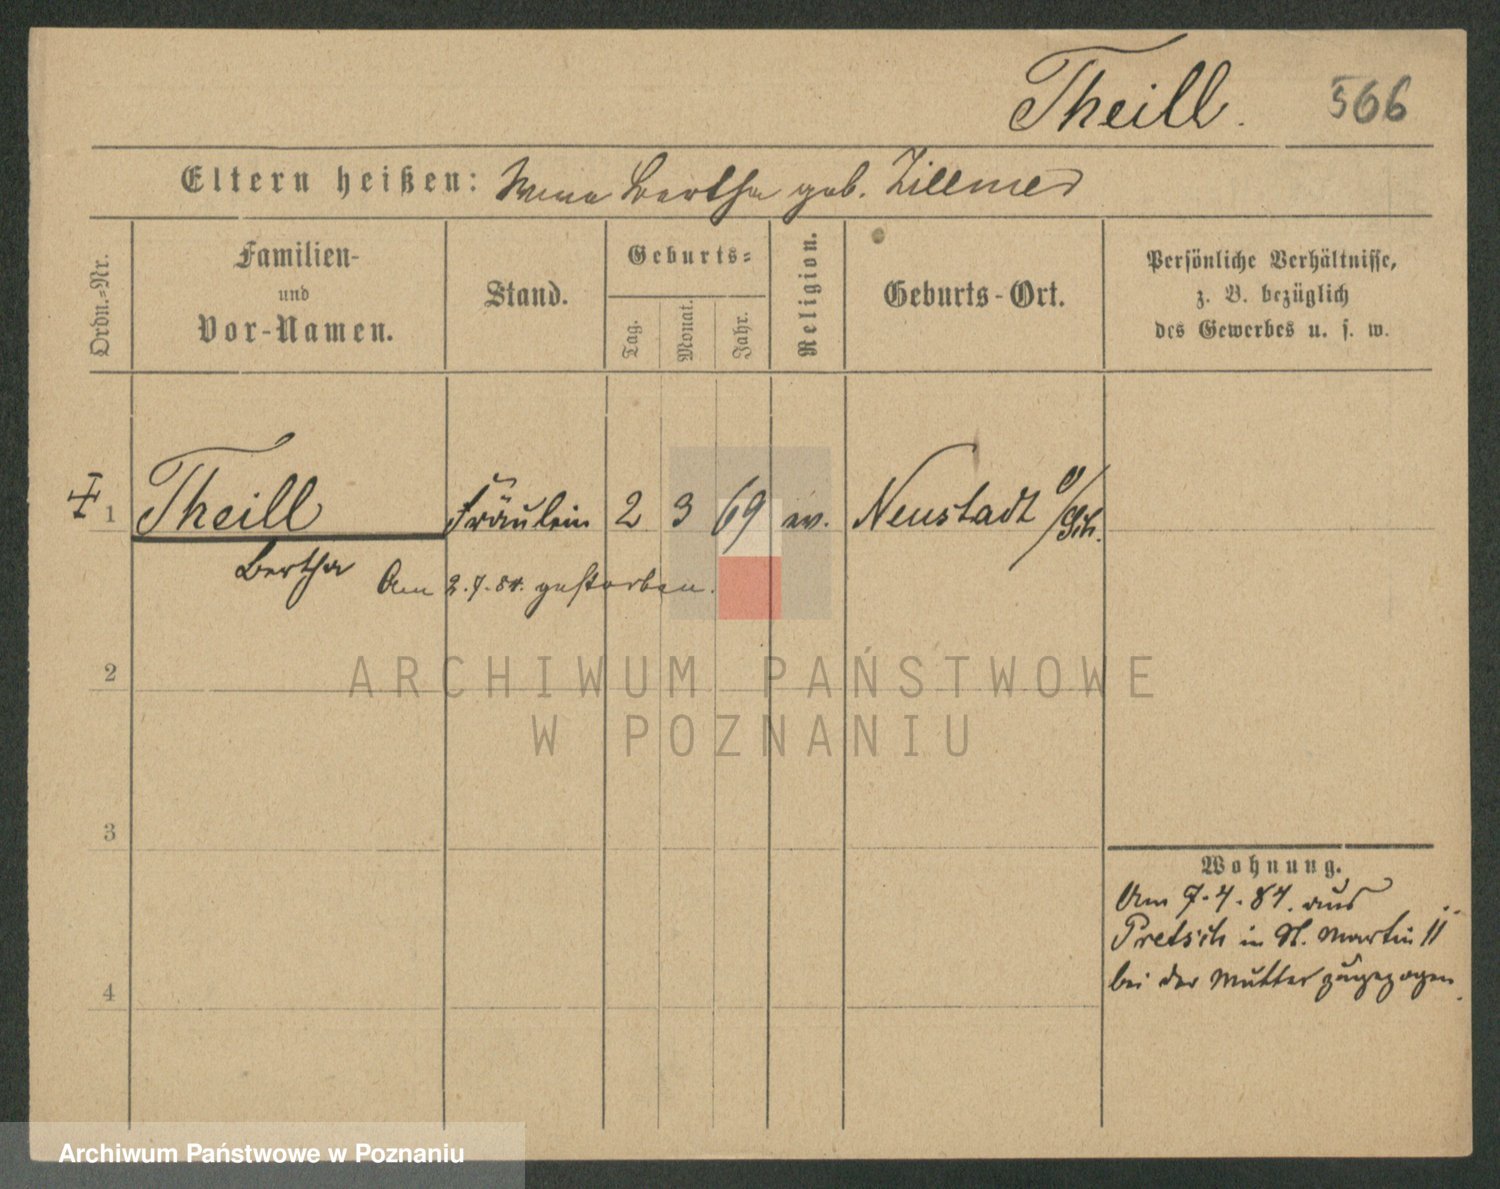 Theill. 566
Eltern heißen: Bertha geb. Zillmer
Ordn.=Nr.
Familien-
und
Vor-Namen.
Stand.
Geburts=
Tag.
Monat.
Jahr.
Religion.
Geburts-Ort.
Persönliche Verhältnisse,
z. B. bezüglich
des Gewerbes u. s. w.
1 Theill Fräulein 2 3 69 ev. Neustadt
Bertha Am 2.7.84. gestorben.
2
ARCHIWUM PAŃSTWOWE
W POZNANIU
3
4
Wohnung.
Am 7.4.84. aus
in St. Martin 11
bei der Mutter zugezogen.
Archiwum Państwowe w Poznaniu